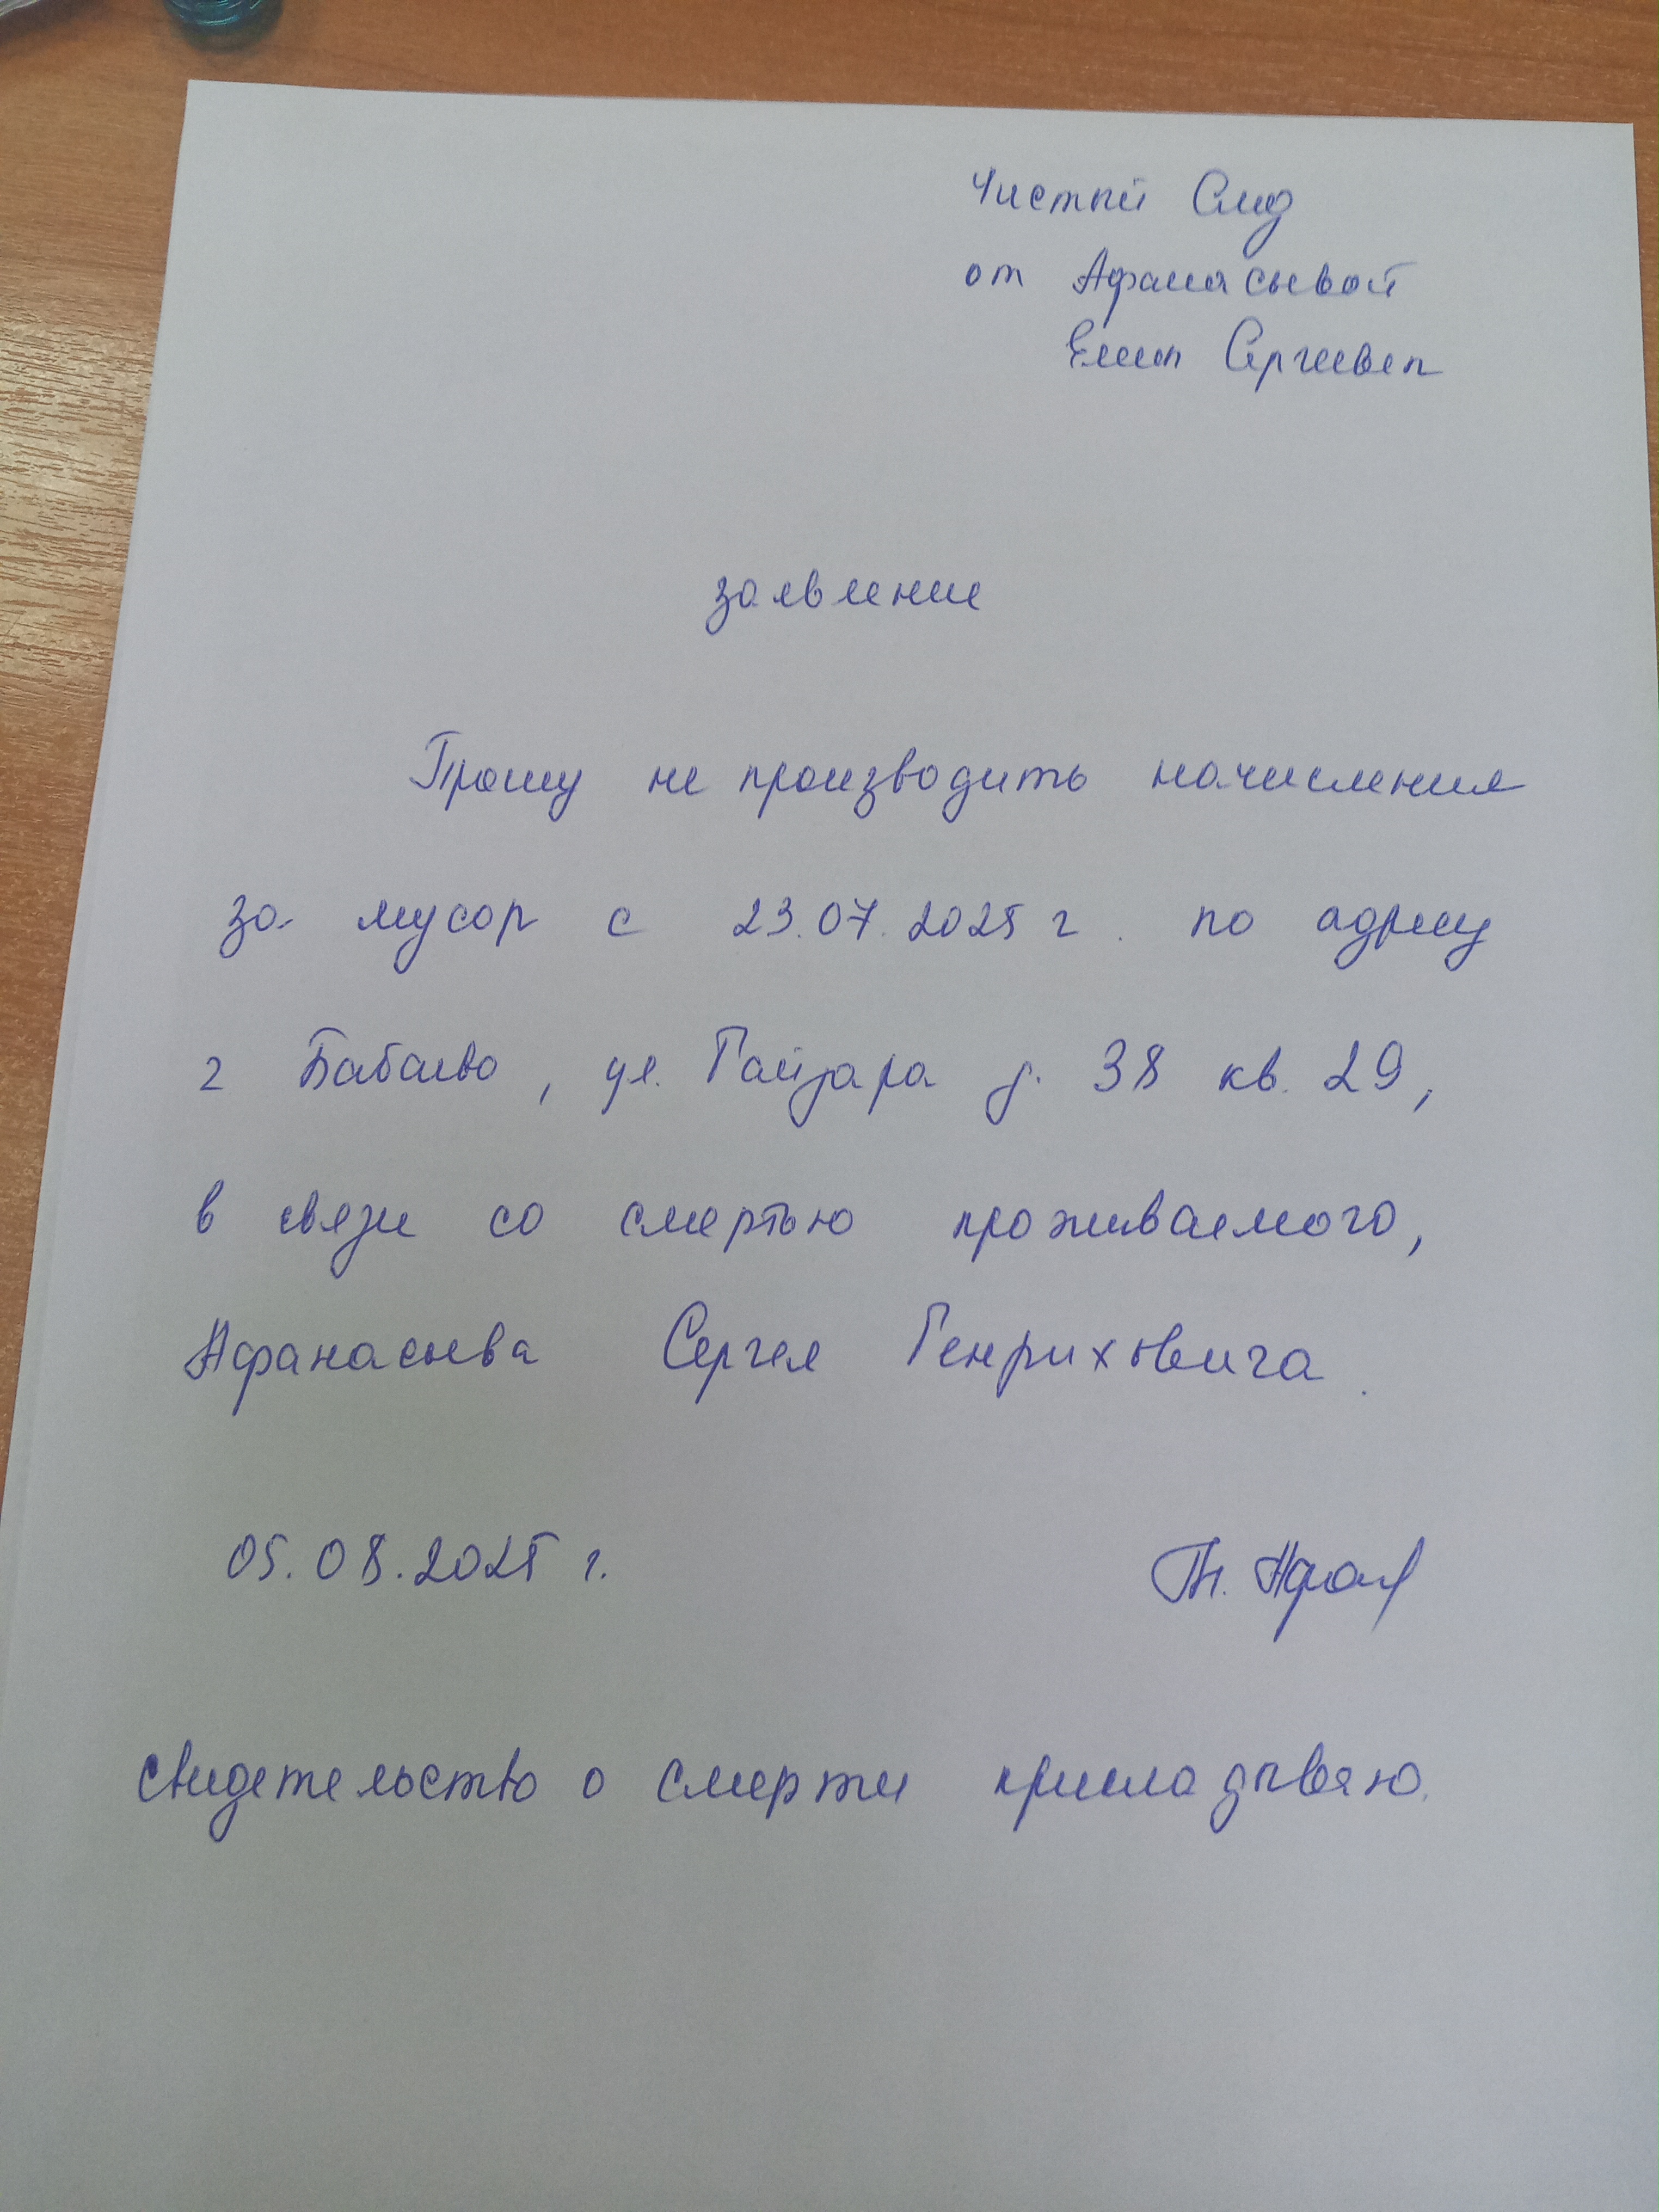 Чистый След
от Афанасьевой
Елены Сергеевны
заявление
Прошу не производить начисления
за мусор с 23.07.2025 г. по адресу
г Бабаево, ул. Гайдара д. 38 кв. 29,
в связи со смертью проживаемого,
Афанасьева Сергея Генриховича.
05.08.2025 г.
свидетельство о смерти прикладываю.